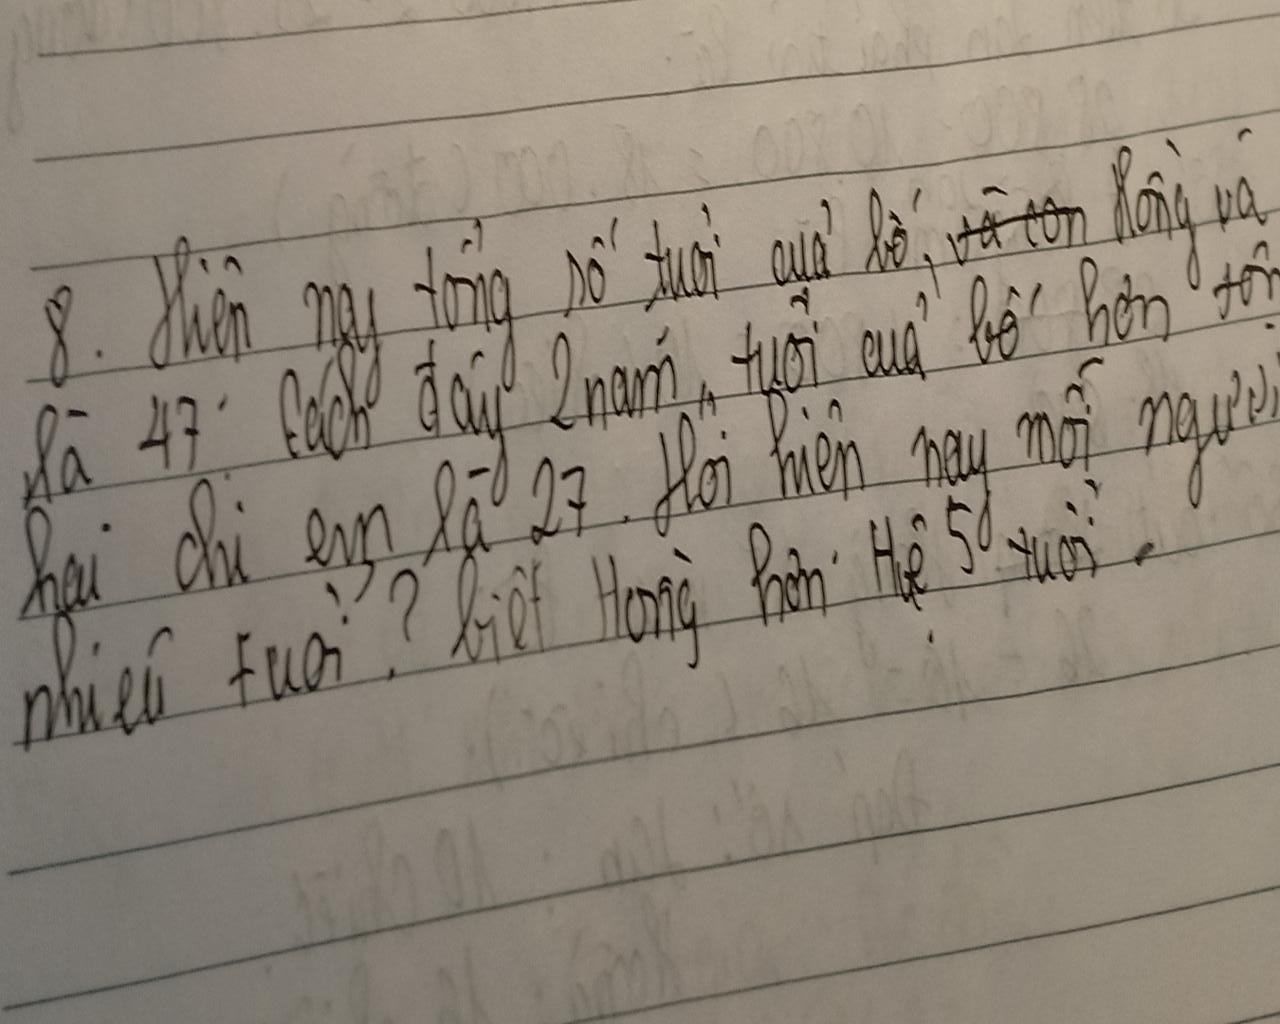 8. Hiện nay tổng số tuổi của bố, và con Hồng và
là 47. Cách đây 2 năm, tuổi của bố hơn tổn
hai chị em là 27. Hỏi hiện nay mỗi người
nhiêu tuổi? biết Hồng hơn Huệ 5 tuổi.